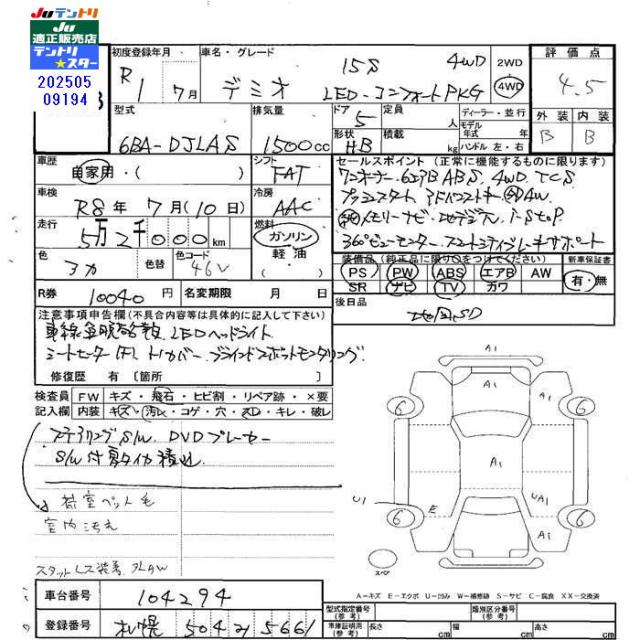 Juテントリ
Ju
適正販売店
テントリ
★スター
202505
09194
初度登録年月
R1 7月
車名・グレード
デミオ
15S 4WD
LED-コンフォートPKG
2WD
4WD
評価点
4.5
外装 内装
B B
型式
6BA-DJLAS
排気量
1500cc
ドア
5
形状
HB
定員
人
積載
kg
ディーラー・並行
モデル
年式 年
ハンドル 左・右
車歴
自家用・( )
シフト
FAT
車検
R8年7月(10日)
冷房
AAC
走行
5万2千000km
燃料
ガソリン
軽油
( )
色
アカ
色替
色コード
46V
R券
10040円
名変期限 月 日
セールスポイント(正常に機能するものに限ります)
ワンオーナー 6エアB ABS 4WD TCS
プッシュスタート
メモリーナビ
360°ビューモニター スマートシティブレーキサポート
装備品(純正品に限り○をつけてください)
PS PW ABS エアB AW
SR ナビ TV カワ
新車保証書
有・無
後日品
注意事項申告欄(不具合内容等は具体的に記入して下さい)
LEDヘッドライト
シートヒーター ブラインドスポットモニタリング
修復歴 有 〔箇所 〕
検査員
記入欄
FW キズ・飛石・ヒビ割・リペア跡・×要
内装 キズ・汚れ・コゲ・穴・スレ・キレ・破レ
ステアリングS/W DVDプレーヤー
S/W付夏タイヤ積込
荷室ペット毛
室内汚れ
スタッドレス装着 夏AW
A1
6 A1 6
A1
U1 UA1
6 E A1 6
スペア
A-キズ E-エクボ U-凹み W-補修跡 S-サビ C-腐食 XX-交換済
車台番号
104294
登録番号
札幌 504 さ 5661
型式指定番号
(参考)
類別区分番号
(参考)
車庫証明用
(参考)
長さ 幅 高さ
cm cm cm